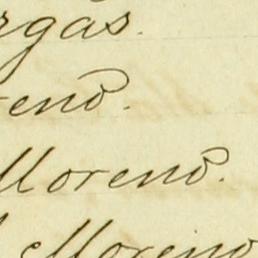 rgas.
reno.
Moreno.
Moreno